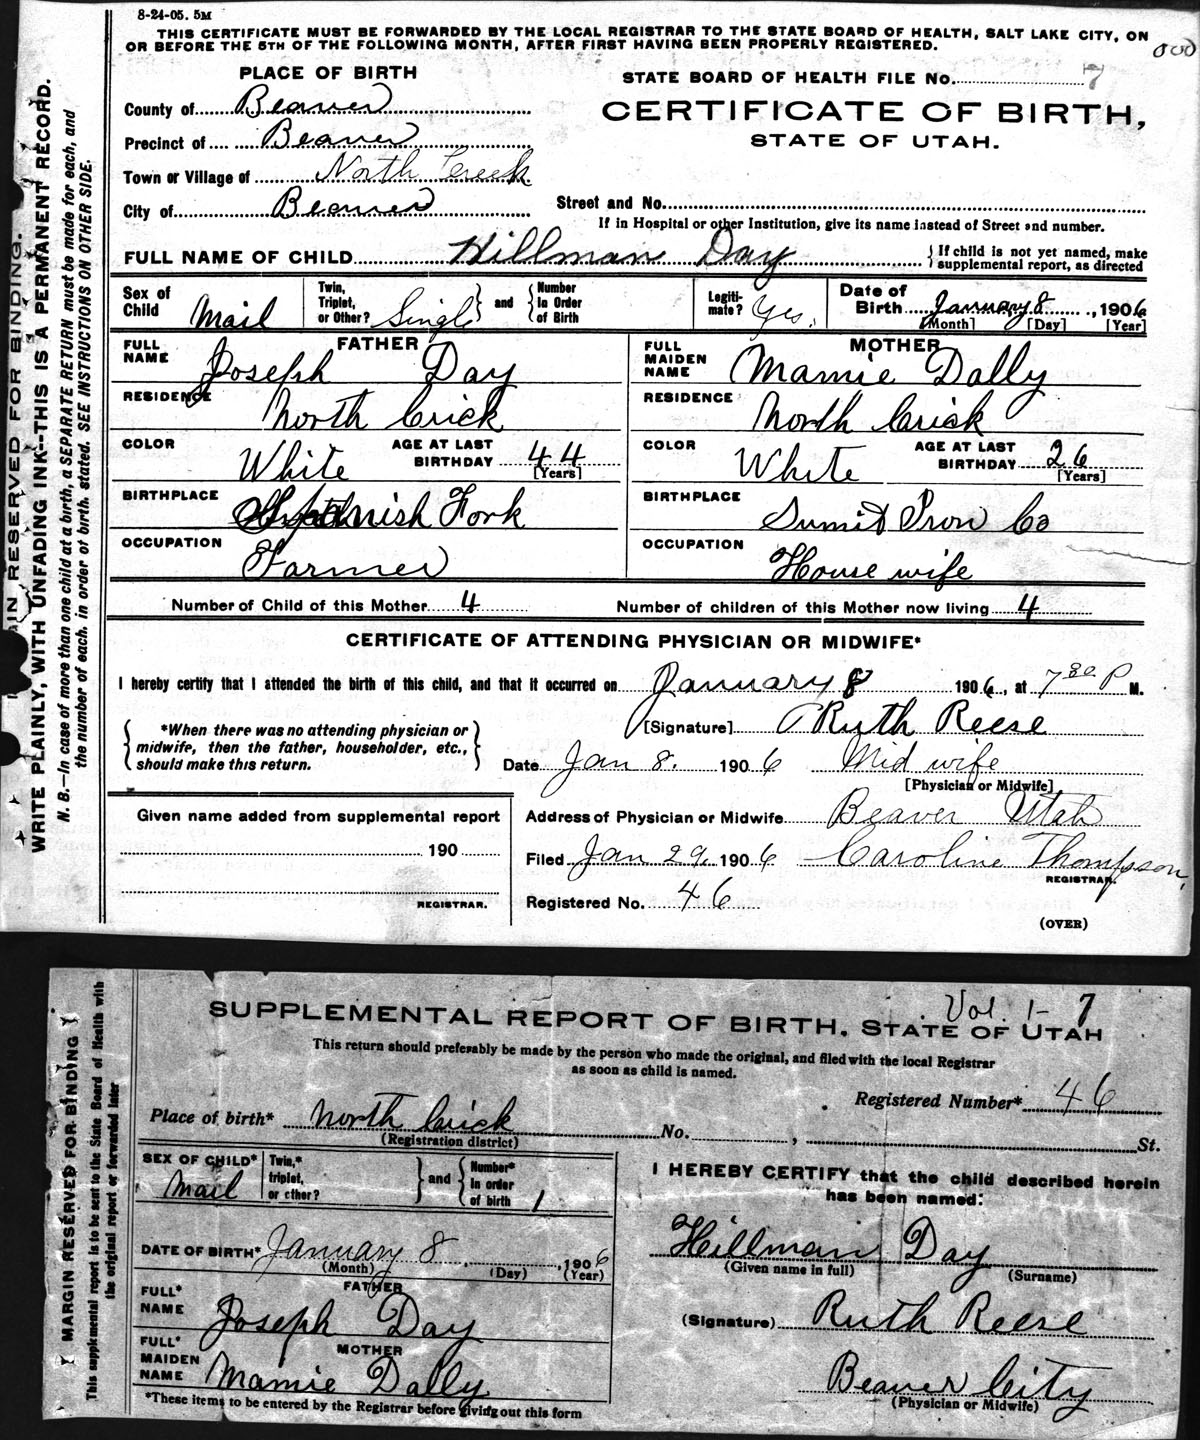 8-24-05. 5M
THIS CERTIFICATE MUST BE FORWARDED BY THE LOCAL REGISTRAR TO THE STATE BOARD OF HEALTH, SALT LAKE CITY, ON
OR BEFORE THE 5TH OF THE FOLLOWING MONTH, AFTER FIRST HAVING BEEN PROPERLY REGISTERED.
PLACE OF BIRTH
STATE BOARD OF HEALTH FILE No. 7
County of Beaver
CERTIFICATE OF BIRTH,
Precinct of Beaver
STATE OF UTAH.
Town or Village of North Creek
City of Beaver
Street and No.
If in Hospital or other Institution, give its name instead of Street and number.
FULL NAME OF CHILD Hillman Day
If child is not yet named, make
supplemental report, as directed
Sex of Child Mail
Twin, Triplet, or Other? Singl
and
Number in Order of Birth
Legitimate? Yes.
Date of Birth January 8, 1906
[Month] [Day] [Year]
FATHER
FULL NAME Joseph Day
RESIDENCE North Crick
COLOR White
AGE AT LAST BIRTHDAY 44
[Years]
BIRTHPLACE Spanish Fork
OCCUPATION Farmer
MOTHER
FULL MAIDEN NAME Mamie Dally
RESIDENCE North Crick
COLOR White
AGE AT LAST BIRTHDAY 26
[Years]
BIRTHPLACE Sumit Iron Co
OCCUPATION House wife
Number of Child of this Mother 4
Number of children of this Mother now living 4
CERTIFICATE OF ATTENDING PHYSICIAN OR MIDWIFE*
I hereby certify that I attended the birth of this child, and that it occurred on January 8 1906, at 7 30 P M.
*When there was no attending physician or
midwife, then the father, householder, etc.,
should make this return.
[Signature] Ruth Reese
Date Jan 8. 1906 Mid wife
[Physician or Midwife]
Given name added from supplemental report
190
REGISTRAR.
Address of Physician or Midwife Beaver Utah
Filed Jan 29, 1906 Caroline Thompson,
REGISTRAR.
Registered No. 46
(OVER)
MARGIN RESERVED FOR BINDING.
WRITE PLAINLY, WITH UNFADING INK--THIS IS A PERMANENT RECORD.
N. B.—In case of more than one child at a birth, a SEPARATE RETURN must be made for each, and
the number of each, in order of birth, stated. SEE INSTRUCTIONS ON OTHER SIDE.
Vol. 1- 7
SUPPLEMENTAL REPORT OF BIRTH, STATE OF UTAH
This return should preferably be made by the person who made the original, and filed with the local Registrar
as soon as child is named.
Registered Number* 46
Place of birth* North Crick No. , St.
(Registration district)
SEX OF CHILD* Mail
Twin,* triplet, or other?
and
Number* in order of birth 1
DATE OF BIRTH* January 8, 1906
(Month) (Day) (Year)
FATHER
FULL* NAME Joseph Day
MOTHER
FULL* MAIDEN NAME Mamie Dally
*These items to be entered by the Registrar before giving out this form
I HEREBY CERTIFY that the child described herein
has been named:
Hillman Day
(Given name in full) (Surname)
(Signature) Ruth Reese
Beaver City
(Physician or Midwife)
MARGIN RESERVED FOR BINDING
This supplemental report is to be sent to the State Board of Health with
the original report or forwarded later